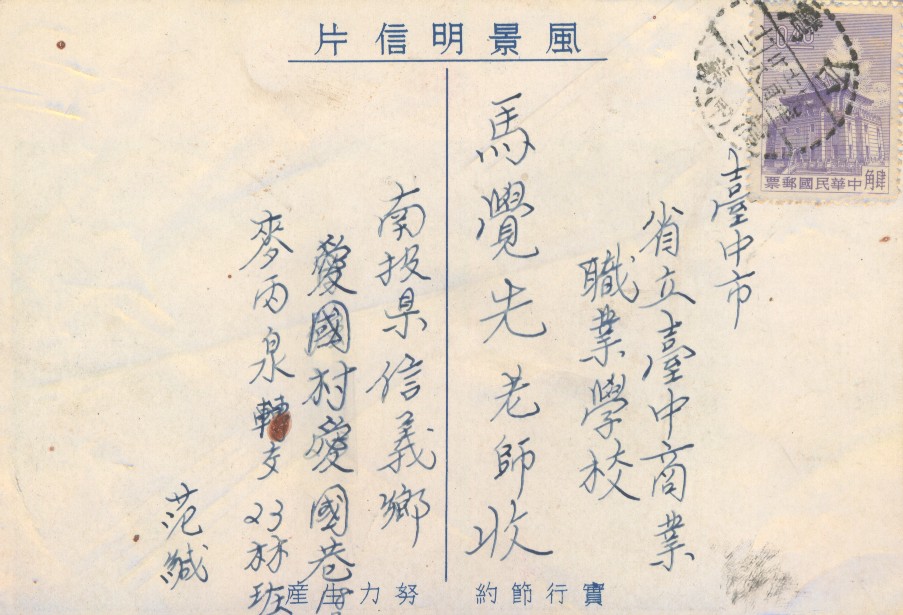 風景明信片
肆角
中華民國郵票
臺中市
省立臺中商業
職業學校
馬覺先老師收
南投県信義鄉
愛國村愛國巷
麥雨泉轉交23林班
范緘
實行節約　努力生產